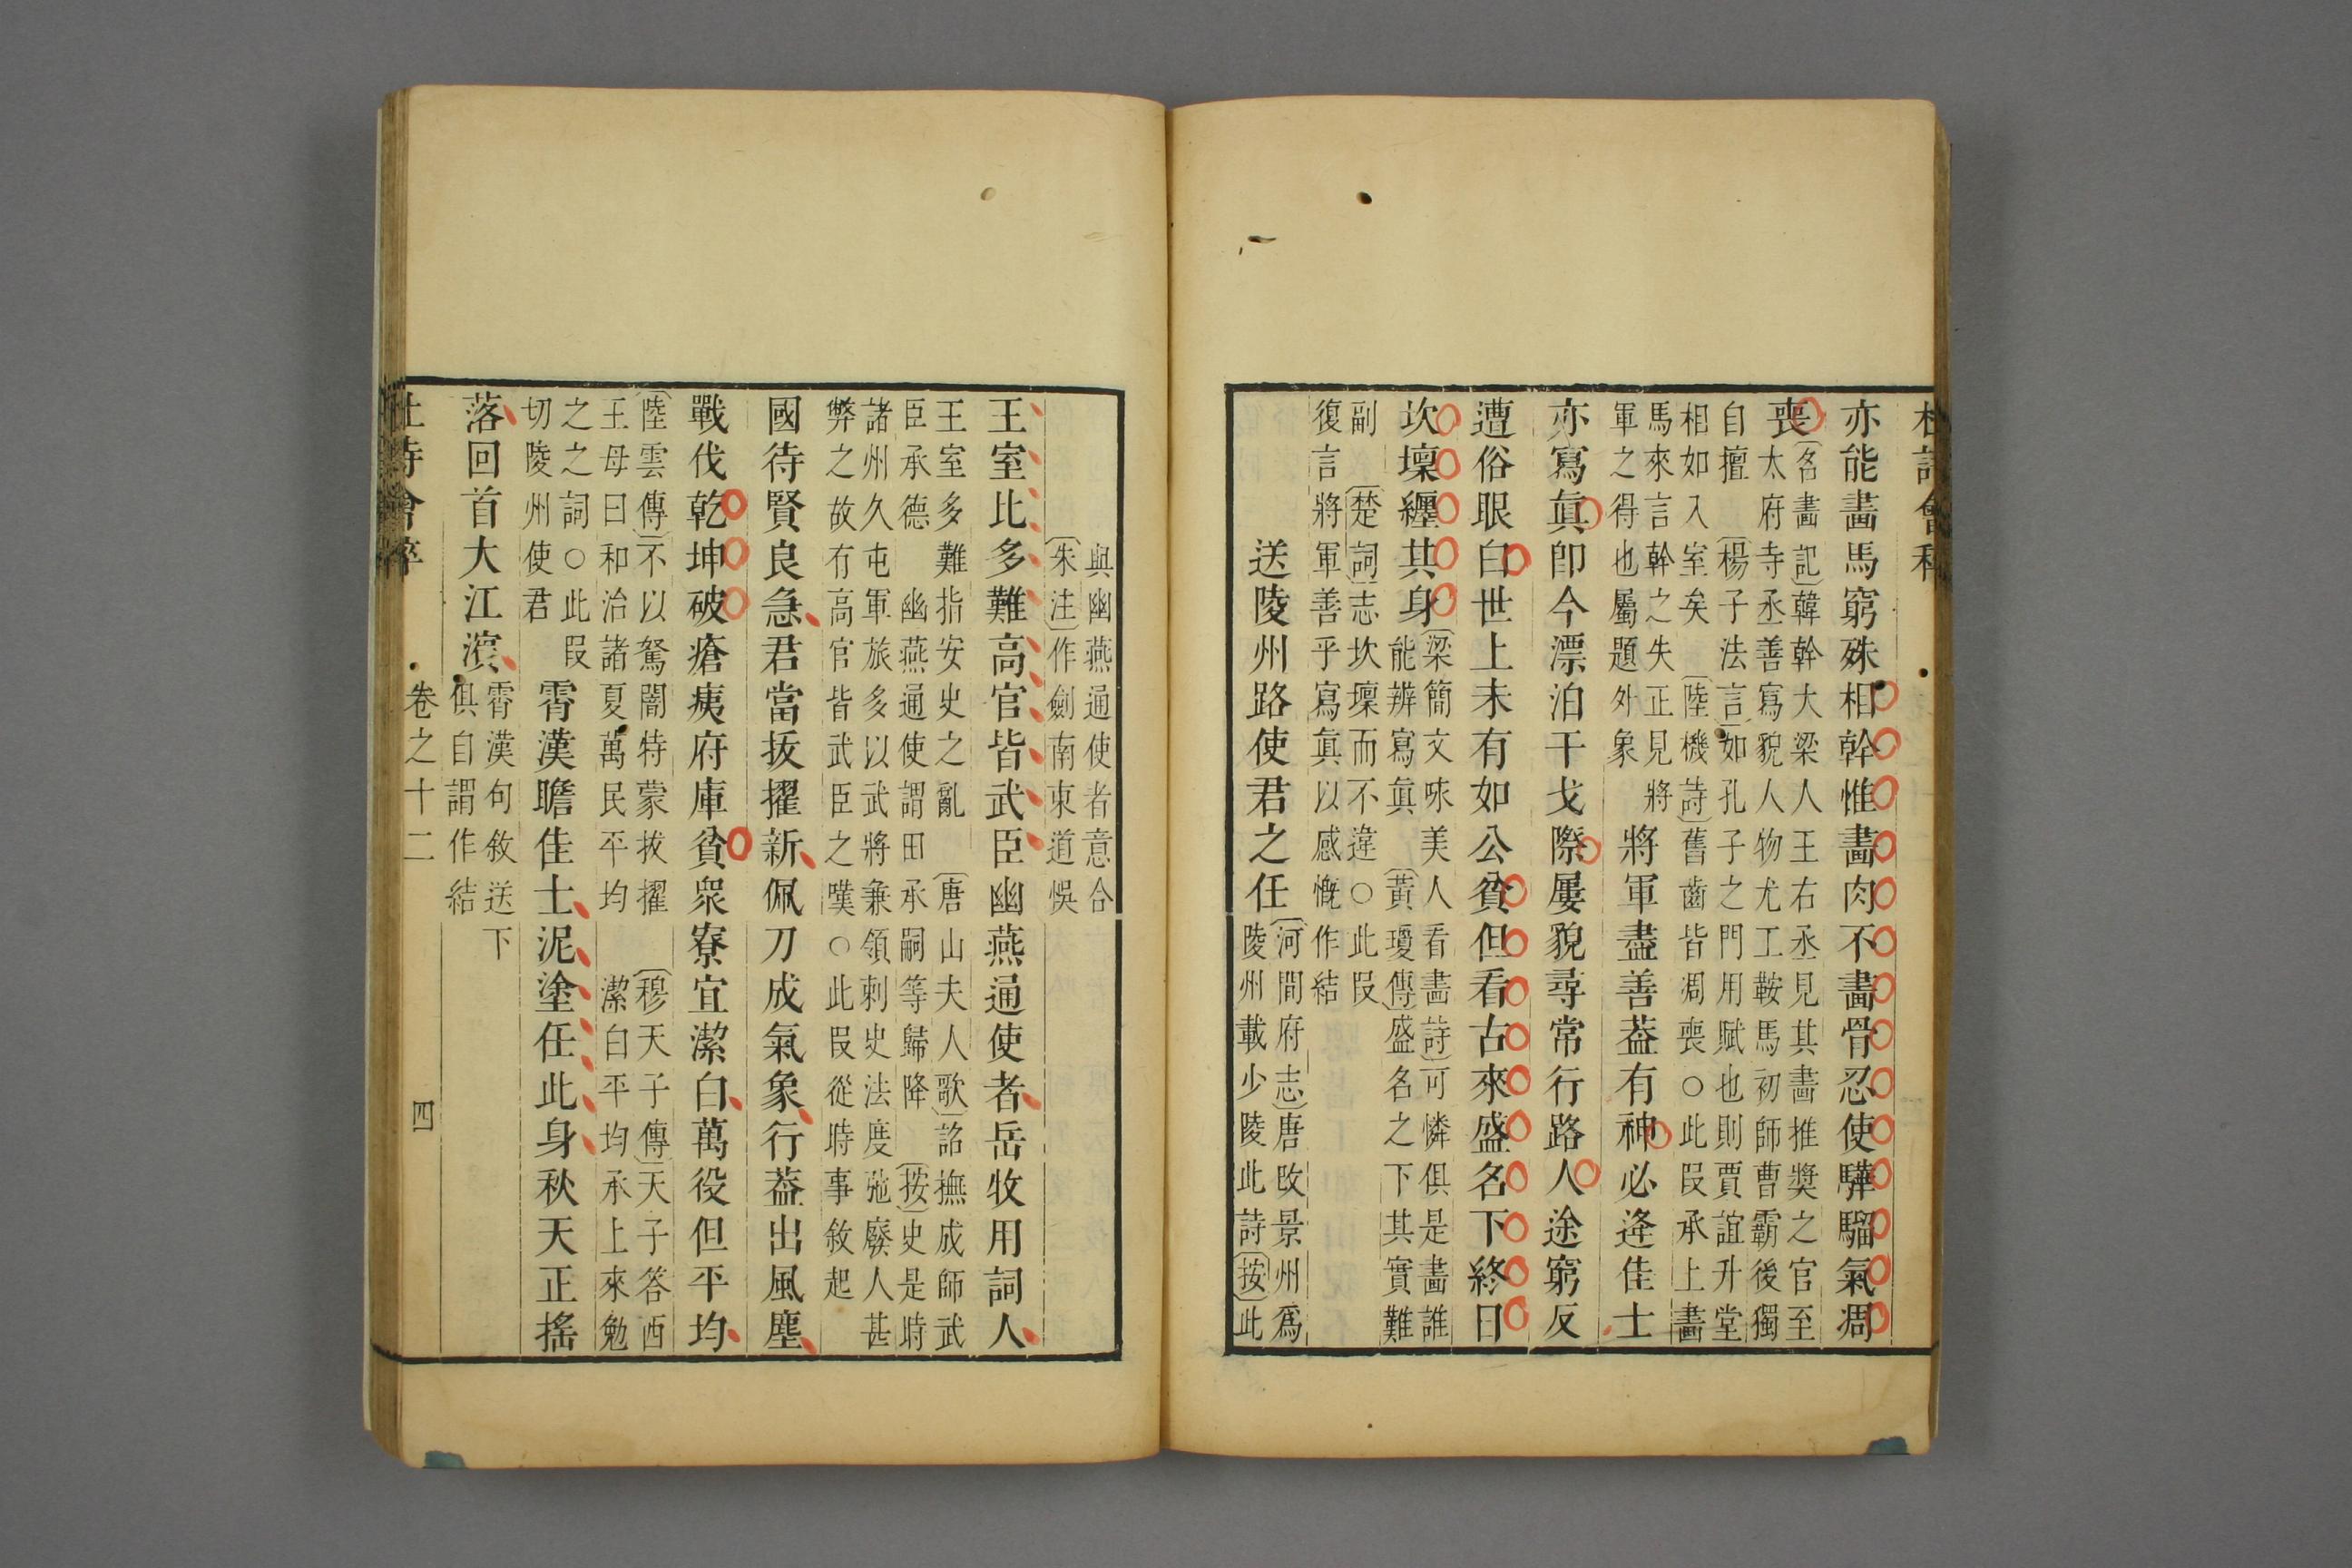 亦能畫馬窮殊相幹惟畫肉不畫骨忍使驊騮氣凋
喪
〔名畫記〕韓幹大梁人王右丞見其畫推奬之官至
太府寺丞善寫貌人物尤工鞍馬初師曹霸後獨
自擅〔楊子法言〕如孔子之門用賦也則賈誼升堂
相如入室矣〔陸機詩〕舊齒皆凋喪○此叚承上畫
馬來言幹之失正見將
軍之得也屬題外象
將軍盡善葢有神必逢佳士
亦寫眞卽今漂泊干戈際屢貌尋常行路人途窮反
遭俗眼白世上未有如公貧但看古來盛名下終日
坎壈纏其身
〔梁簡文咏美人看畫詩〕可憐俱是畫誰
能辨寫眞〔黃瓊傳〕盛名之下其實難
副〔楚詞〕志坎壈而不違○此叚
復言將軍善乎寫眞以感慨作結
送陵州路使君之任
〔河間府志〕唐改景州爲
陵州載少陵此詩〔按〕此
與幽燕通使者意合
〔朱注〕作劍南東道悞
王室比多難高官皆武臣幽燕通使者岳牧用詞人
王室多難指安史之亂〔唐山夫人歌〕詔撫成師武
臣承德 幽燕通使謂田承嗣等歸降〔按〕史是時
諸州久屯軍旅多以武將兼領刺史法度弛廢人甚
弊之故有高官皆武臣之嘆○此叚從時事敘起
國待賢良急君當拔擢新佩刀成氣象行葢出風塵
戰伐乾坤破瘡痍府庫貧衆寮宜潔白萬役但平均
〔陸雲傳〕不以駑闇特蒙拔擢〔穆天子傳〕天子答西
王母曰和治諸夏萬民平均 潔白平均承上來勉
之之詞○此叚
切陵州使君
霄漢瞻佳士泥塗任此身秋天正搖
落回首大江濱
霄漢句敘送下
俱自謂作結
卷之十二
四